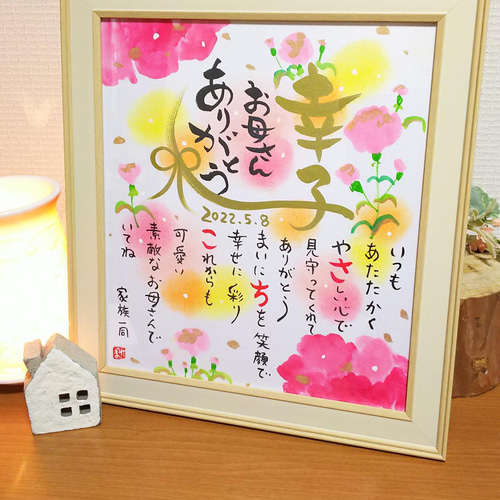 幸子
お母さん
ありがとう
2022.5.8
いつも
あたたかく
やさしい心で
見守ってくれて
ありがとう
まいにちを笑顔で
幸せに彩り
これからも
可愛い
素敵なお母さんで
いてね
家族一同